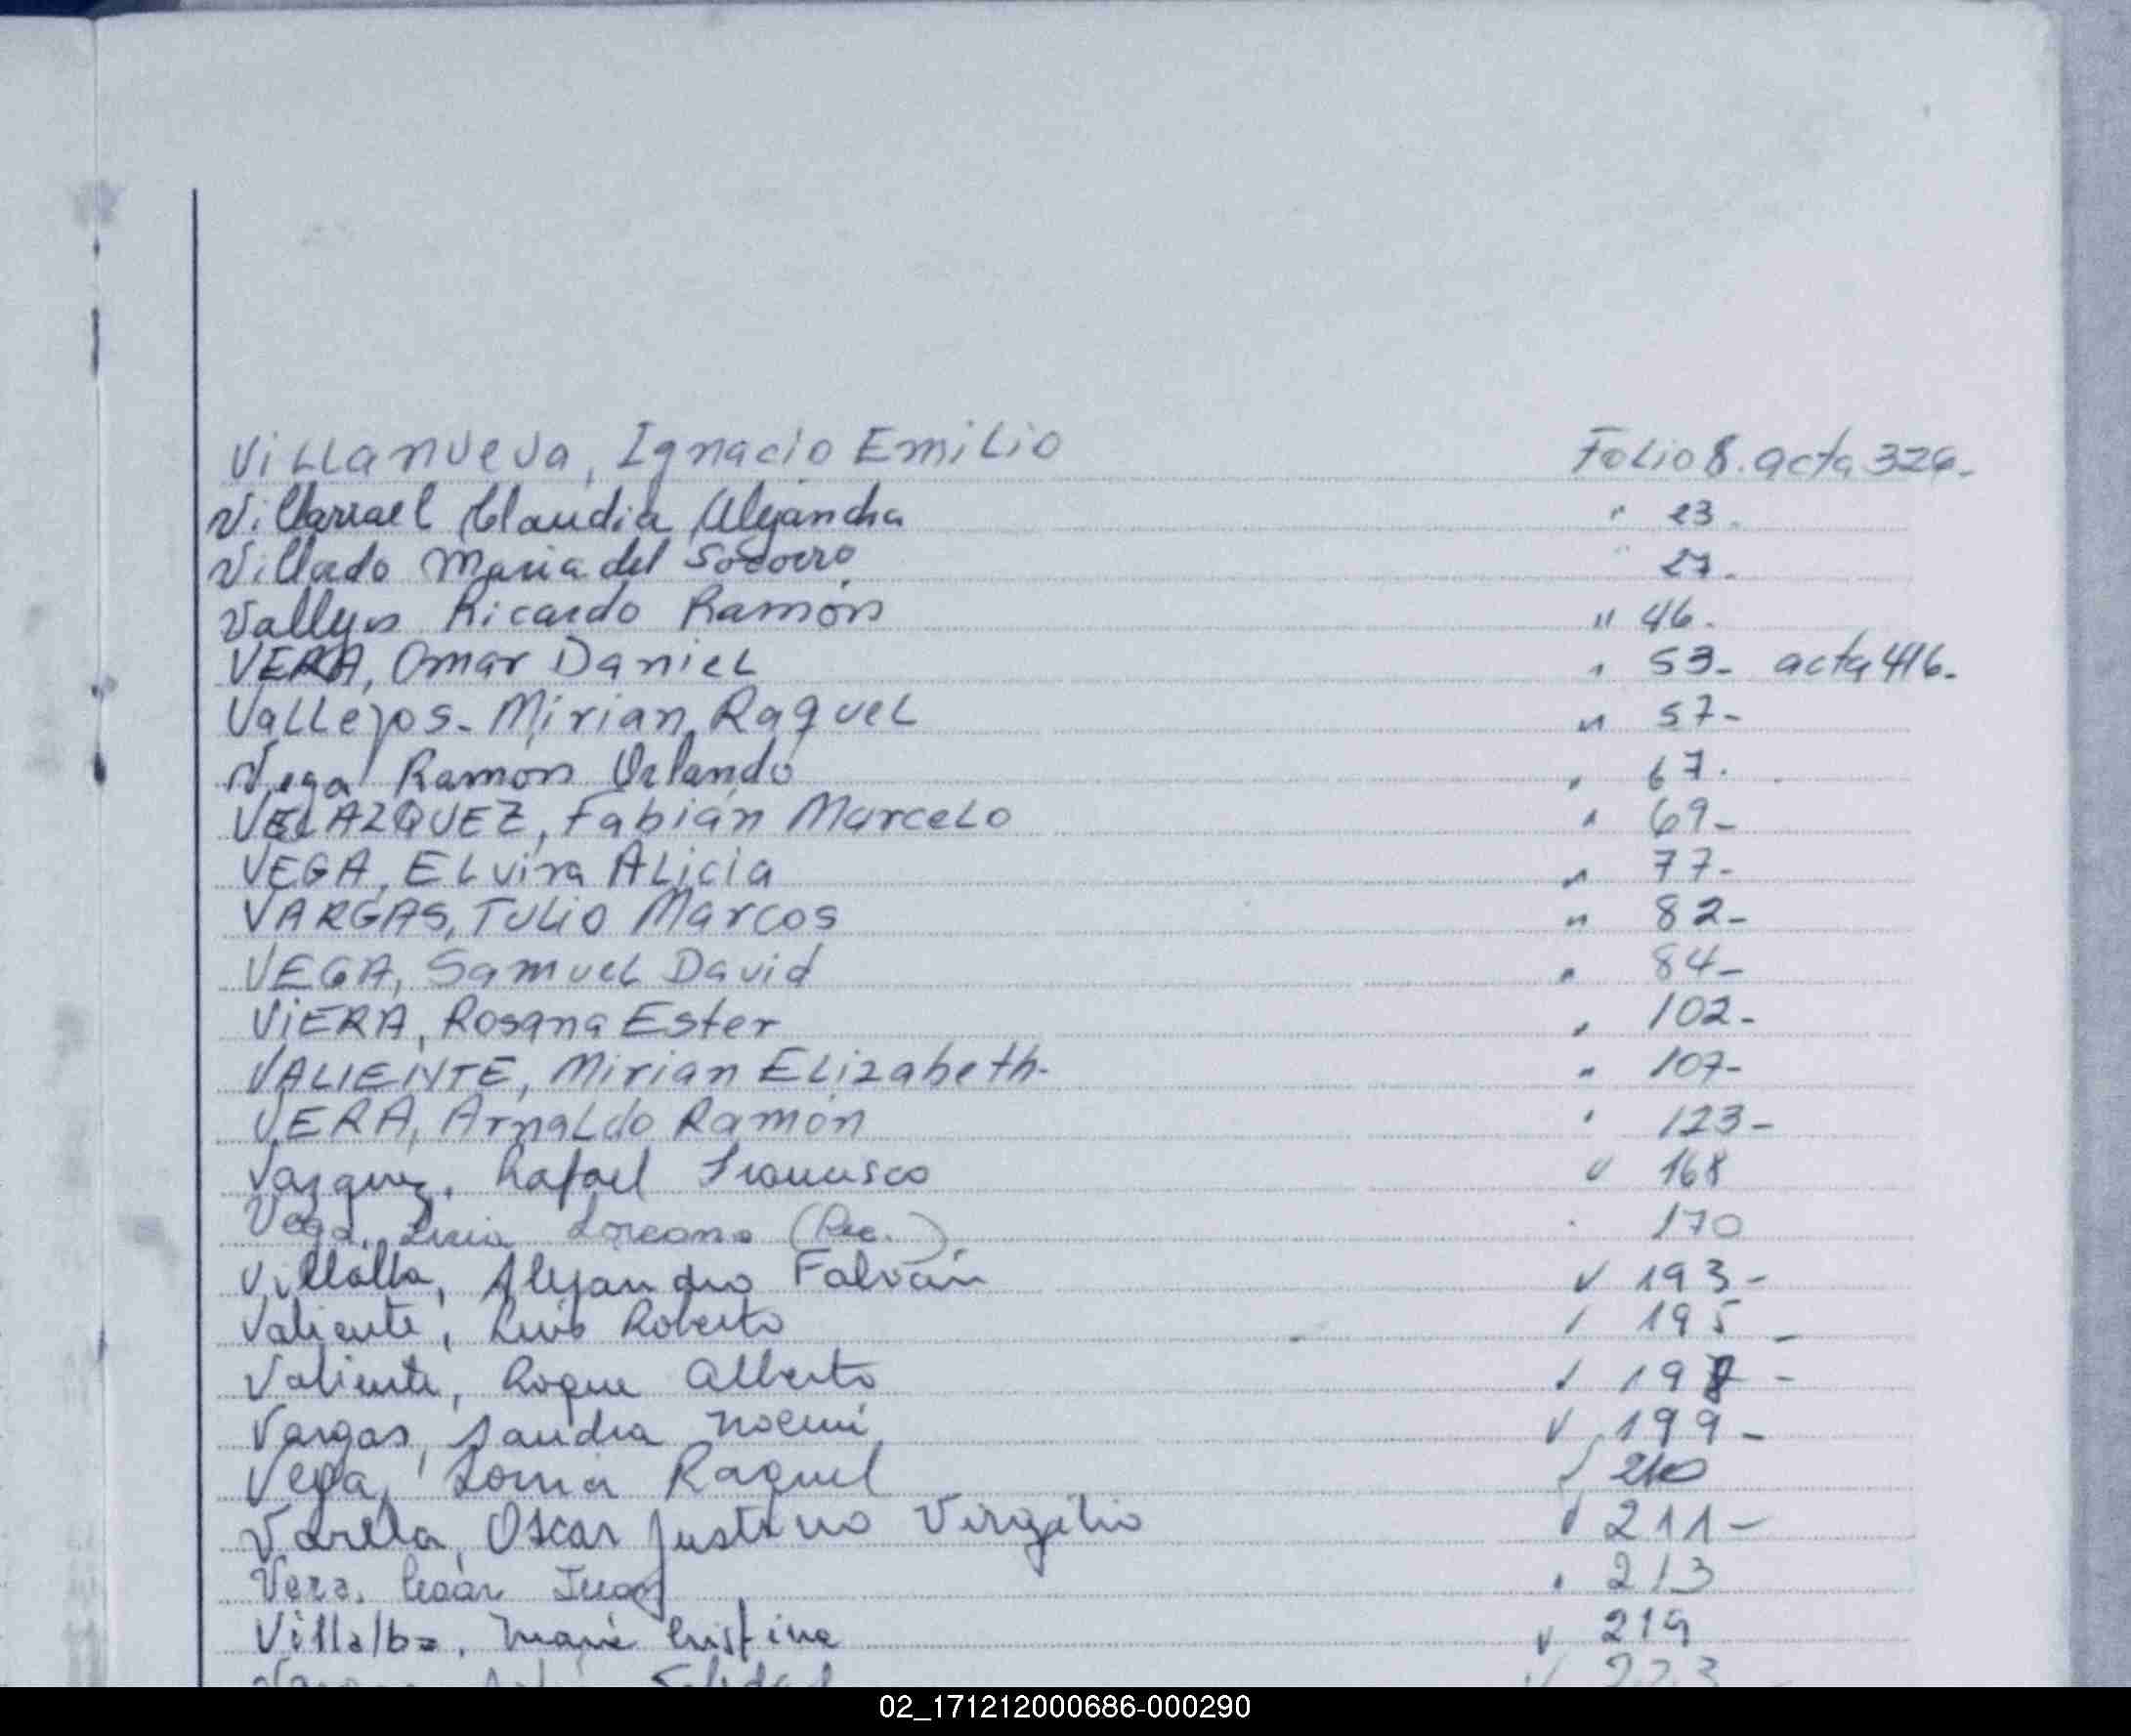 Villanueva, Ignacio Emilio Folio 8. acta 324-
Villarrael Claudia Alejandra " 23.
Villado Maria del Socorro " 27.
Vallejos Ricardo Ramón " 46.
VERA, Omar Daniel " 53- acta 416-
Vallejos- Mirian Raquel " 57-
Vega Ramon Orlando " 67.
VELAZQUEZ, Fabián Marcelo " 69-
VEGA, Elvira Alicia " 77-
VARGAS, Tulio Marcos " 82-
VEGA, Samuel David " 84-
VIERA, Rosana Ester " 102-
VALIENTE, Mirian Elizabeth- " 107-
VERA, Arnaldo Ramón " 123-
Vazquez, Rafael Francisco " 168
Vega, (Rec.). " 170
Villalba, Alejandro Fabián " 193-
Valiente, Luis Roberto " 195-
Valiente, Roque Alberto " 197-
Vargas, Sandra Noemi " 199-
Vega, Sonia Raquel " 210
Varela, Oscar Justino Virgilio " 211-
Vera, Cesar Juan " 213
Villalba, Maria Cristina " 219
223
02_171212000686-000290